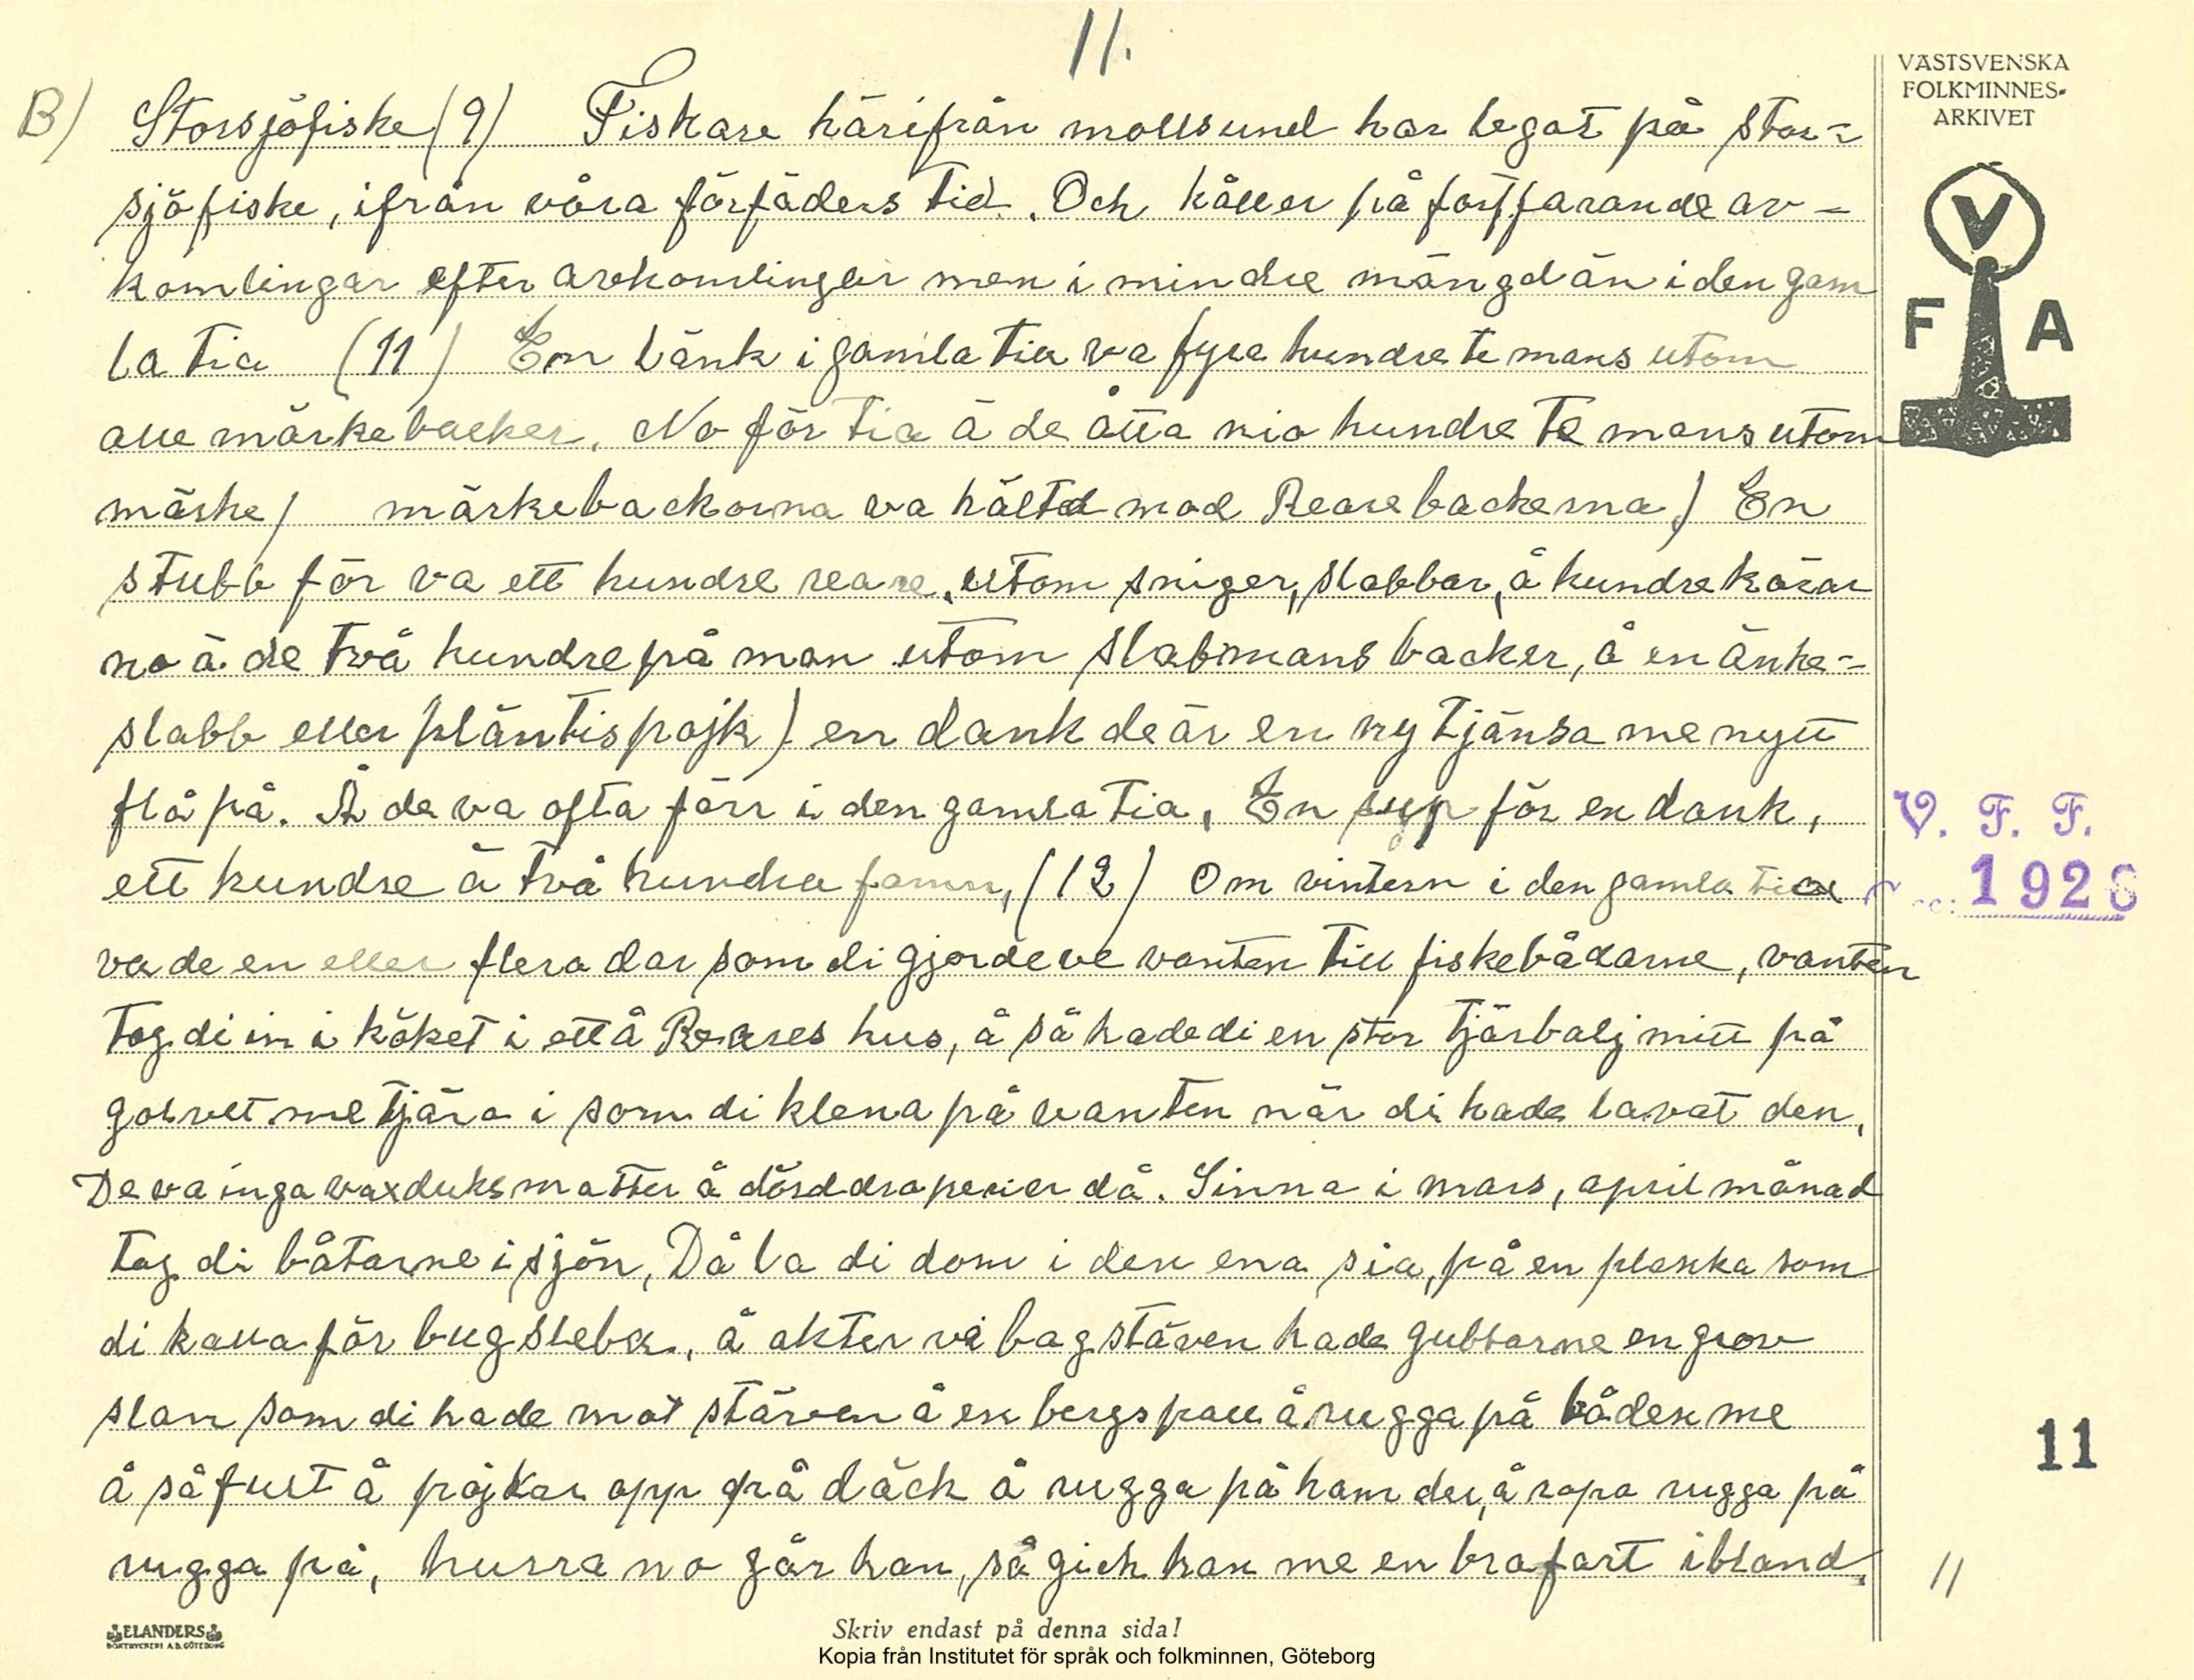 11.
VÄSTSVENSKA
FOLKMINNES-
ARKIVET
V
F A
B) Storsjöfiske (9) Fiskare härifrån mollsund har legat på stor-
sjöfiske, ifrån våra förfäders tid. Och håller på fortfarande av-
komlingar efter avkomlingar men i mindre mängd än i den gam
la tia (11) En bänk i gamla tia va fyra hundre te mans utom
alle märkebacker. No för tia ä de åtta nio hundre te mans utom
märke) märkebackorna va hälta mod Rearebackerna) En
stubb för va ett hundre reare, utom sniger, slabbar, å hundrekörar
no ä de två hundre på man utom slabmans backer, å en änke-
slabb eller pläntispojk) en dank de är en ny tjänsa me nytt
flå på. Å de va ofta förr i den gamla tia, En sup för en dank,
ett hundre å två hundra famn, (12) Om vintern i den gamla tia
va de en eller flera dar som di gjorde ve vanten till fiskebådarne, vanten
tog di in i köket i ett å Reares hus, å så hade di en stor tjärbalj mitt på
golvet me tjära i som di klena på vanten när di hade lavat den,
De va inga vaxduksmatter å dörddraperier då. Sinna i mars, april månad
tog di båtarne i sjön, Då la di dom i den ena sia, på en planka som
di kalla för bugsleba, å akter vé bagstäven hade gubbarne en grov
slan som di hade mot stäven å en bergspall å rugga på båden me
å så fullt å påjkar opp på däck å rugga på ham der, å ropa rugga på
rugga på, hurra no går han, så gick han me en bra fart ibland.
V. F. F.
1926
11
11
ELANDERS
BOKTRYCKERI A.B. GÖTEBORG
Skriv endast på denna sida!
Kopia från Institutet för språk och folkminnen, Göteborg